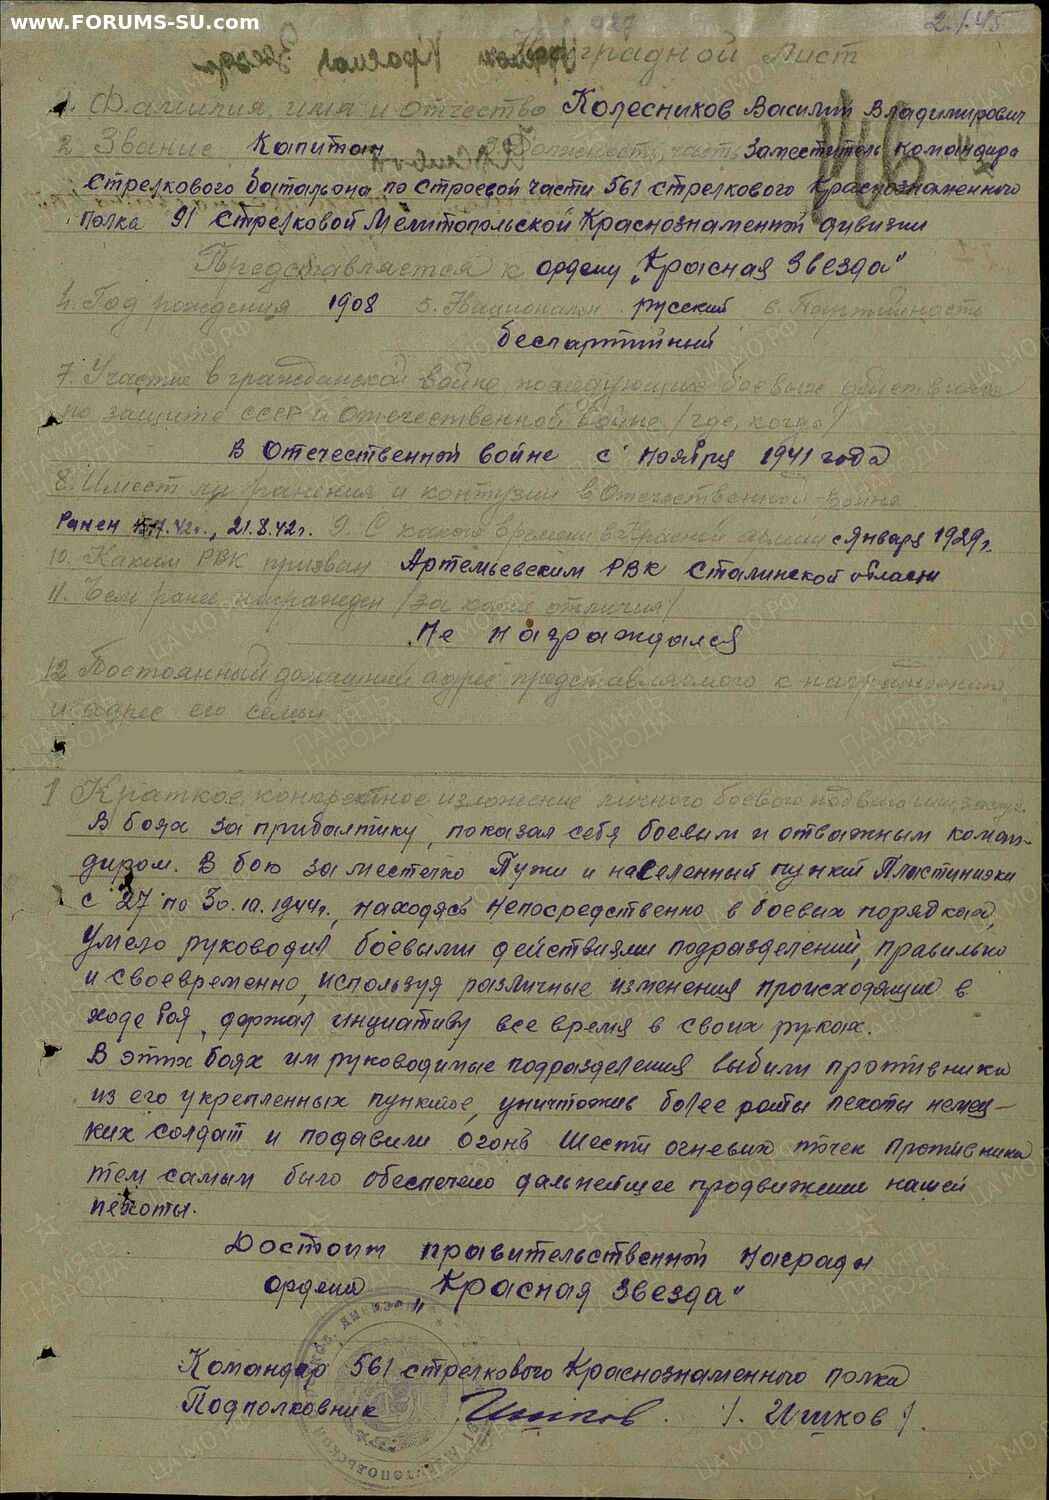 www.FORUMS-SU.com
2.1.45
Наградной Лист
1. Фамилия, имя и отчество Колесников Василий Владимирович
2 Звание Капитан 3. Должность, часть Заместитель командира
стрелкового батальона по строевой части 561 стрелкового Краснознаменного
полка 91 Стрелковой Мелитопольской Краснознаменной дивизии
Представляется к ордену „Красная Звезда"
4. Год рождения 1908 5. Национальн. русский 6. Партийность
беспартийный
7. Участие в гражданской войне, последующих боевых действиях
по защите СССР и Отечественной войне /где, когда/
В Отечественной войне с ноября 1941 года
8. Имеет ли ранения и контузии в Отечественной войне
Ранен 42г., 21.8.42г. 9. С какого времени в Красной армии с Января 1929г.
10. Каким РВК призван Артемьевским РВК Сталинской области
11. Чем ранее награжден /за какие отличия/
Не награждался
12 Постоянный домашний адрес представляемого к награждению
и адрес его семьи
1 Краткое, конкретное изложение личного боевого подвига или заслуг.
В боях за прибалтику, показал себя боевым и отважным коман-
диром. В бою за местечко Пужи и населенный пункт
с 27 по 30.10.1944г., находясь непосредственно в боевых порядках,
умело руководил боевыми действиями подразделений, правильно
и своевременно, используя различные изменения происходящие в
ходе боя, держал инциативу все время в своих руках.
В этих боях им руководимые подразделения выбили противника
из его укрепленных пунктов, уничтожив более роты пехоты немец-
ких солдат и подавили огонь шести огневых точек противника
тем самым было обеспечено дальнейшее продвижение нашей
пехоты.
Достоин правительственной награды
ордена „Красная Звезда"
Командир 561 стрелкового Краснознаменного полка
Подполковник /. Ишков /.